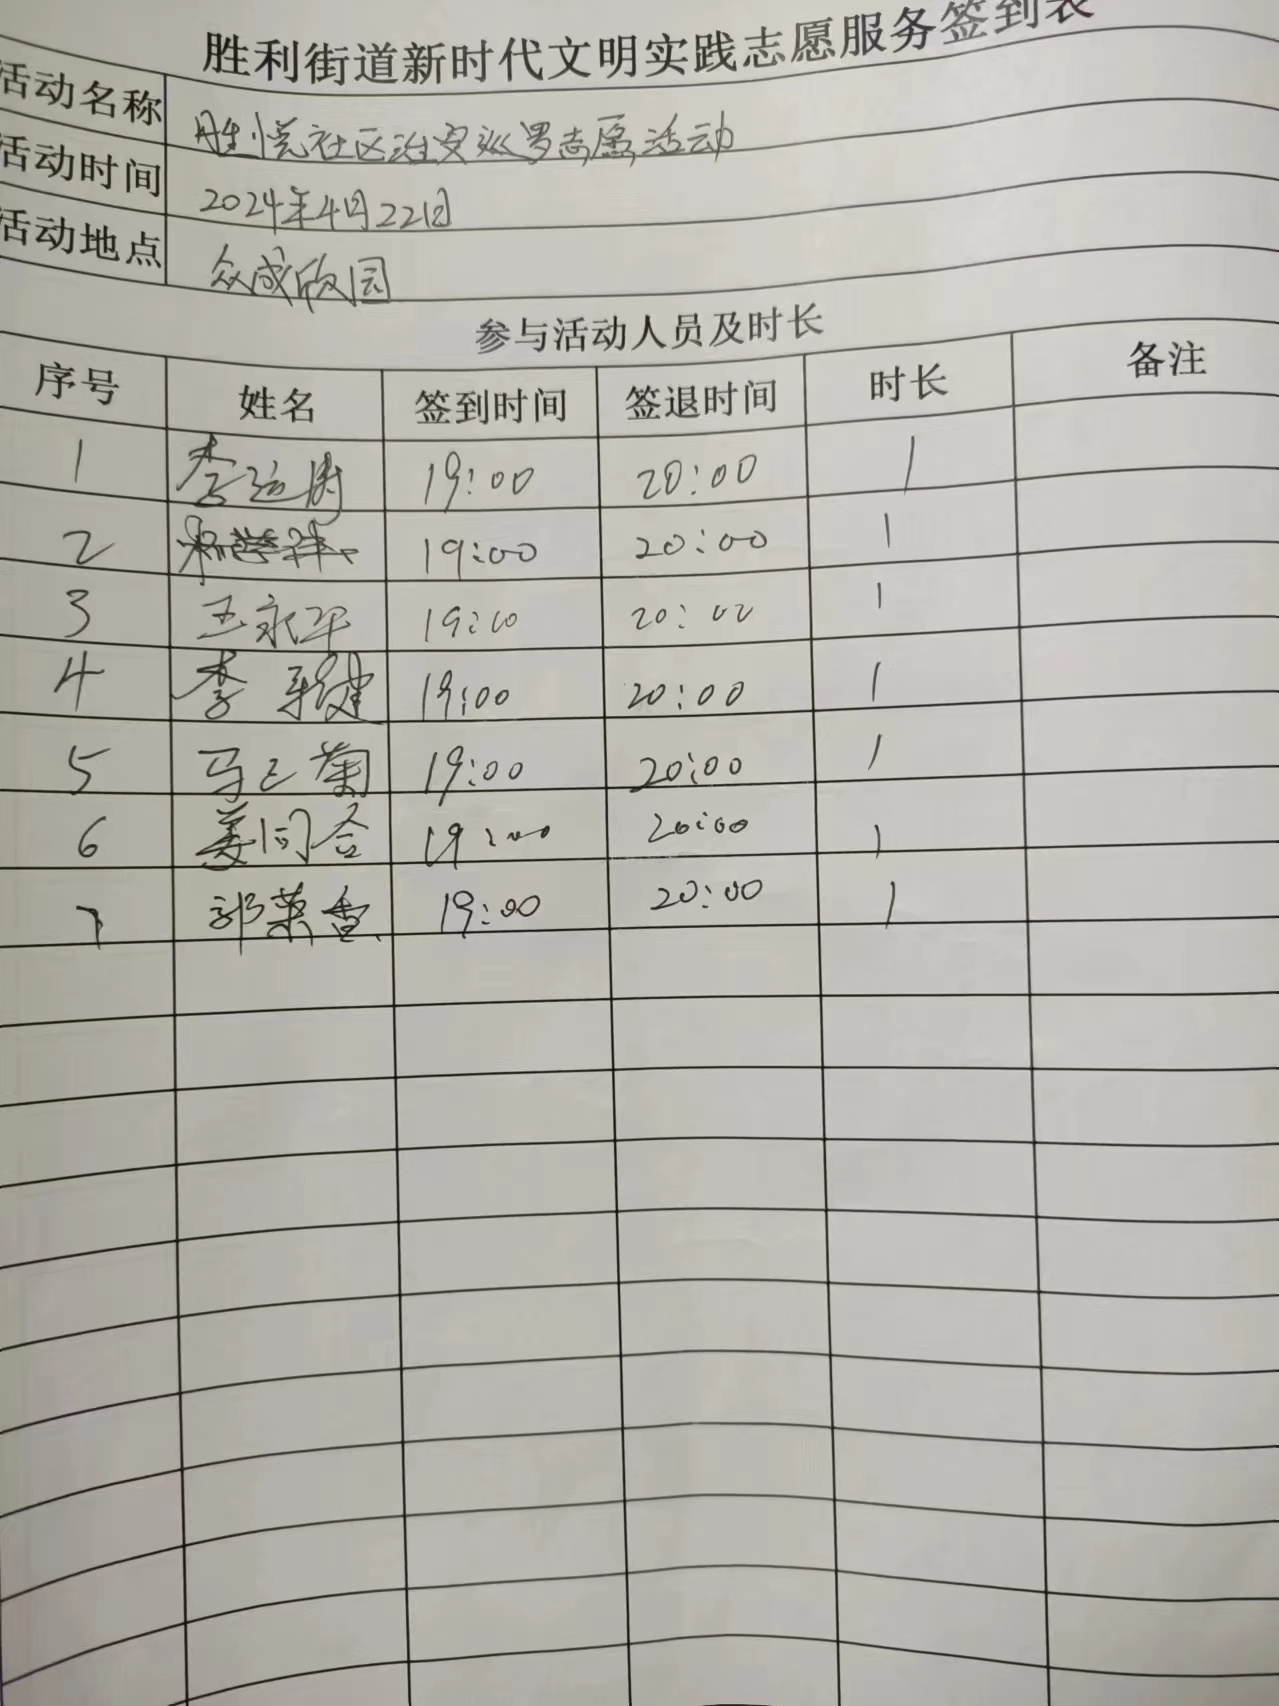 胜利街道新时代文明实践志愿服务签到表
活动名称 胜悦社区治安巡逻志愿活动
活动时间 2024年4月22日
活动地点 众成欣园
参与活动人员及时长
序号 姓名 签到时间 签退时间 时长 备注
1 李运 19:00 20:00 1
2 19:00 20:00 1
3 王永华 19:00 20:00 1
4 李 健 19:00 20:00 1
5 马 菊 19:00 20:00 1
6 姜同合 19:00 20:00 1
7 郭荣香 19:00 20:00 1